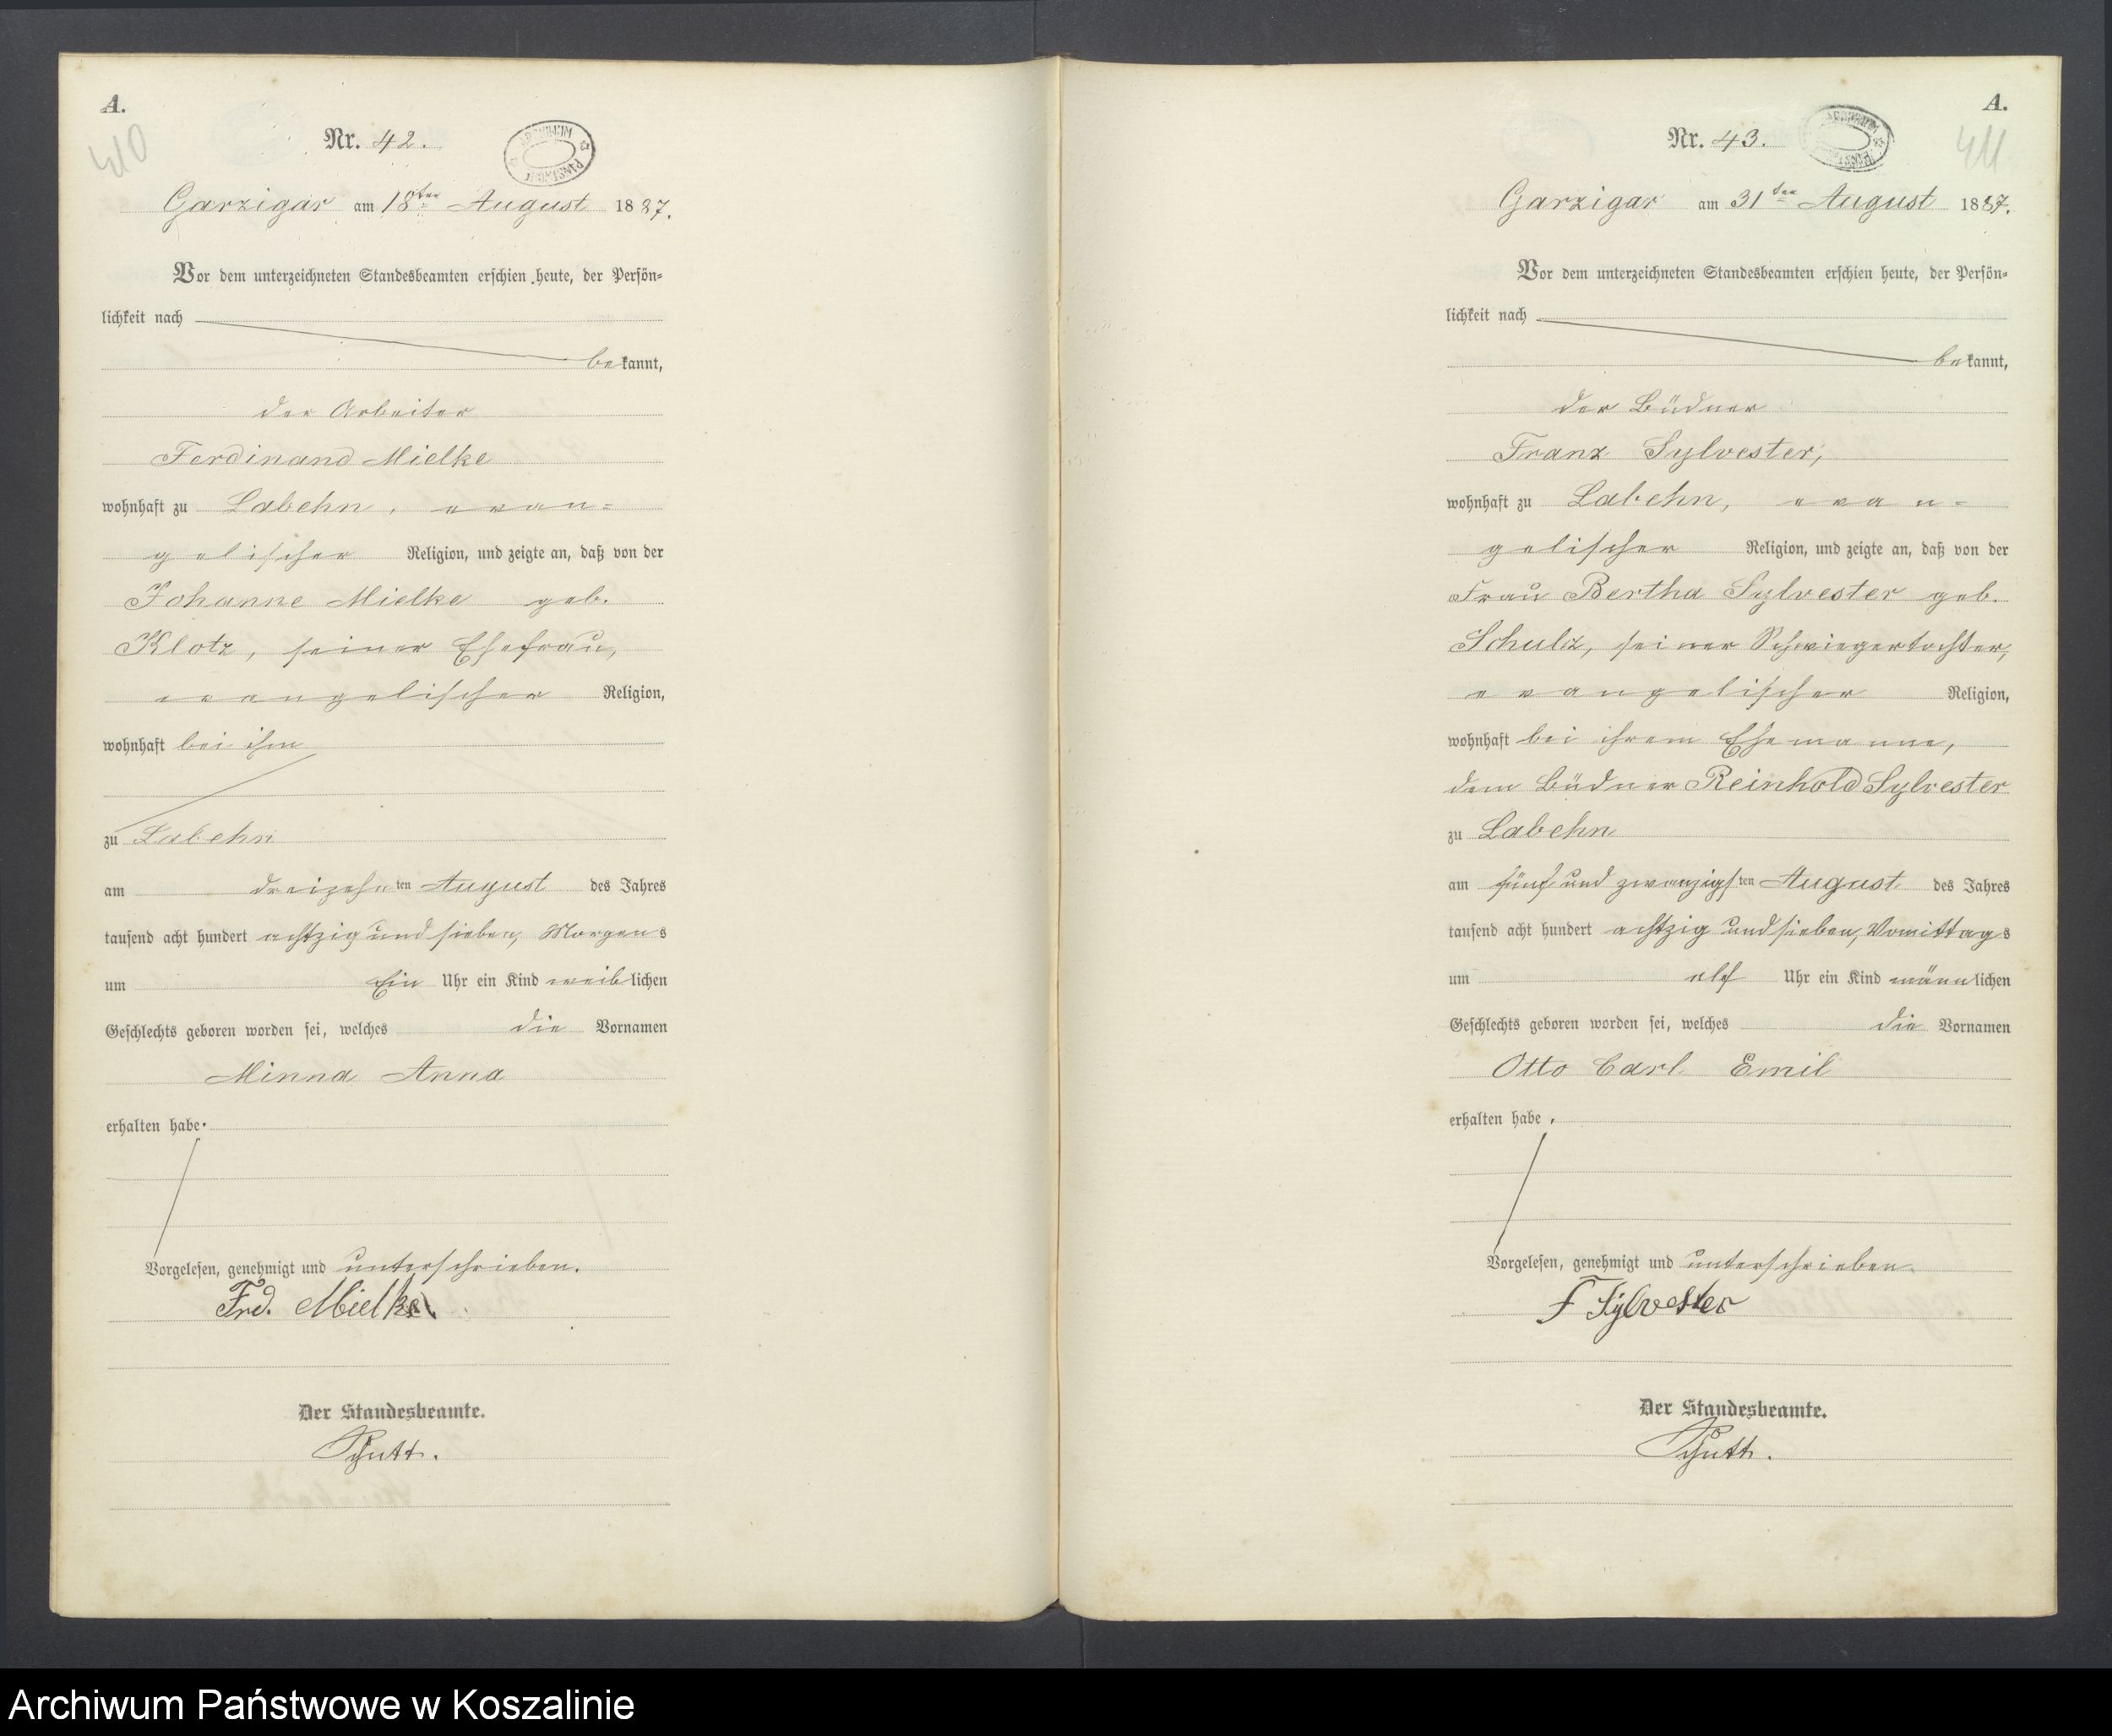 A.
410
Nr. 42.
ARCHIWUM PAŃSTWOWE
Garzigar am 18ten August 1887.
Vor dem unterzeichneten Standesbeamten erschien heute, der Persön-
lichkeit nach
bekannt,
der Arbeiter
Ferdinand Mielke
wohnhaft zu Labehn, evan-
gelischer Religion, und zeigte an, daß von der
Johanne Mielke geb.
Klotz, seiner Ehefrau,
evangelischer Religion,
wohnhaft bei ihm
zu Labehn
am dreizehnten August des Jahres
tausend acht hundert achtzig und sieben, Morgens
um Ein Uhr ein Kind weiblichen
Geschlechts geboren worden sei, welches die Vornamen
Minna Anna
erhalten habe.
Vorgelesen, genehmigt und unterschrieben.
Frd. Mielke
Der Standesbeamte.
A.
411
Nr. 43.
ARCHIWUM PAŃSTWOWE
Garzigar am 31ten August 1887.
Vor dem unterzeichneten Standesbeamten erschien heute, der Persön-
lichkeit nach
bekannt,
der Büdner
Franz Sylvester,
wohnhaft zu Labehn, evan-
gelischer Religion, und zeigte an, daß von der
Frau Bertha Sylvester geb.
Schulz, seiner Schwiegertochter,
evangelischer Religion,
wohnhaft bei ihrem Ehemanne,
dem Büdner Reinhold Sylvester
zu Labehn
am fünf und zwanzigsten August des Jahres
tausend acht hundert achtzig und sieben, Vormittags
um elf Uhr ein Kind männlichen
Geschlechts geboren worden sei, welches die Vornamen
Otto Carl Emil
erhalten habe.
Vorgelesen, genehmigt und unterschrieben.
F Sylvester
Der Standesbeamte.
Archiwum Państwowe w Koszalinie